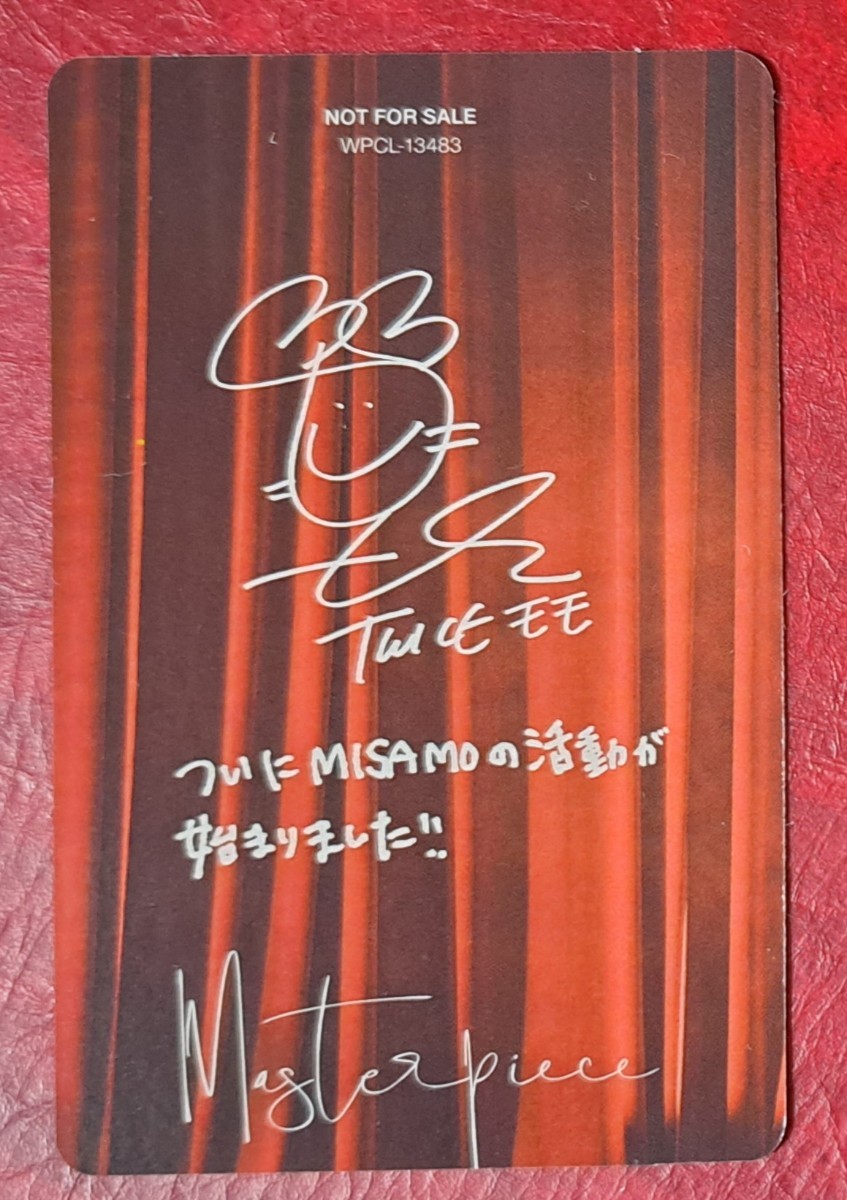 NOT FOR SALE
WPCL-13483
TWICE モモ
ついにMISAMOの活動が
始まりました!!
Masterpiece